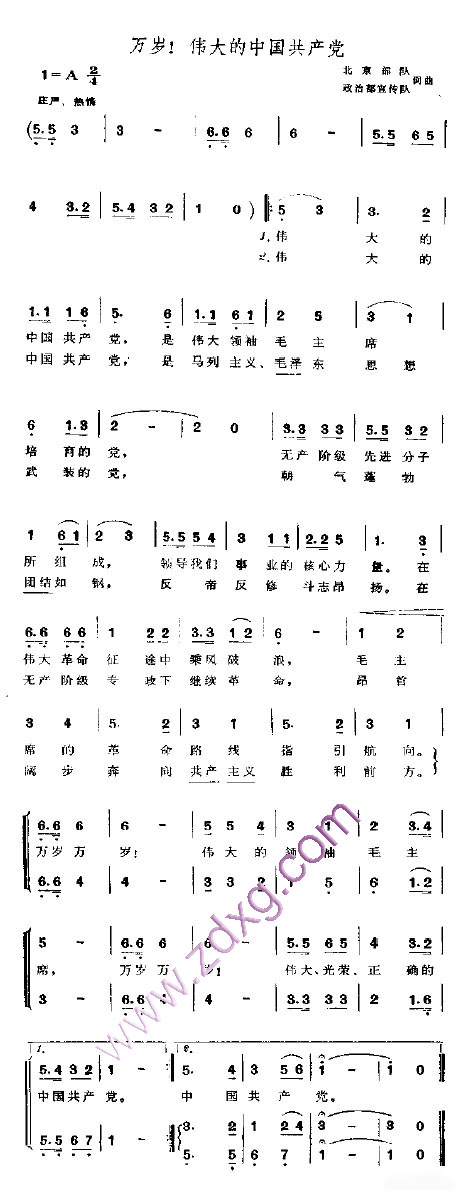 万岁！伟大的中国共产党
1=A 2/4
北京部队
政治部宣传队 词曲
庄严、热情
(5.5 3 | 3 - | 6.6 6 | 6 - | 5.5 6 5 |
4 3.2 | 5.4 3 2 | 1 0 ) |: 5 3 | 3. 2 |
1.伟 大的
2.伟 大的
1.1 1 6 | 5. 6 | 1.1 6 1 | 2 5 | 3 1 |
中国共产党，是伟大领袖毛主席
中国共产党，是马列主义、毛泽东思想
6 1.3 | 2 - | 2 0 | 3.3 3 3 | 5.5 3 2 |
培育的党， 无产阶级先进分子
武装的党， 朝气蓬勃
1 6 1 | 2 3 | 5.5 5 4 | 3 1 1 | 2.2 2 5 | 1. 3 |
所组成，领导我们事业的核心力量。在
团结如钢，反帝反修斗志昂扬。在
6.6 6 6 | 1 2 2 | 3.3 1 2 | 6 - | 1 2 |
伟大革命征途中乘风破浪，毛主
无产阶级专政下继续革命，昂首
3 4 | 5. 2 | 3 4 | 5. 2 | 3 1 |
席的革命路线指引航向。
阔步奔向共产主义胜利前方。
6.6 6 | 6 - | 5 5 4 | 3 1 | 2 3.4 |
万岁万岁！伟大的领袖毛主
6.6 6 | 4 4 | 3 3 2 | 1 5 | 6 1.2 |
5 - | 6.6 6 | 6 - | 5.5 6 5 | 4 3.2 |
席，万岁万岁！伟大、光荣、正确的
3 - | 6.6 6 | 2 - | 3.3 3 3 | 2 1.6 |
1. 2.
5.4 3 2 | 1 - :| 5. 4 | 3 5 6 | 1 - | 1 0 ||
中国共产党。 中国共产党。
5.5 6 7 | 1 -
www.zdxg.com